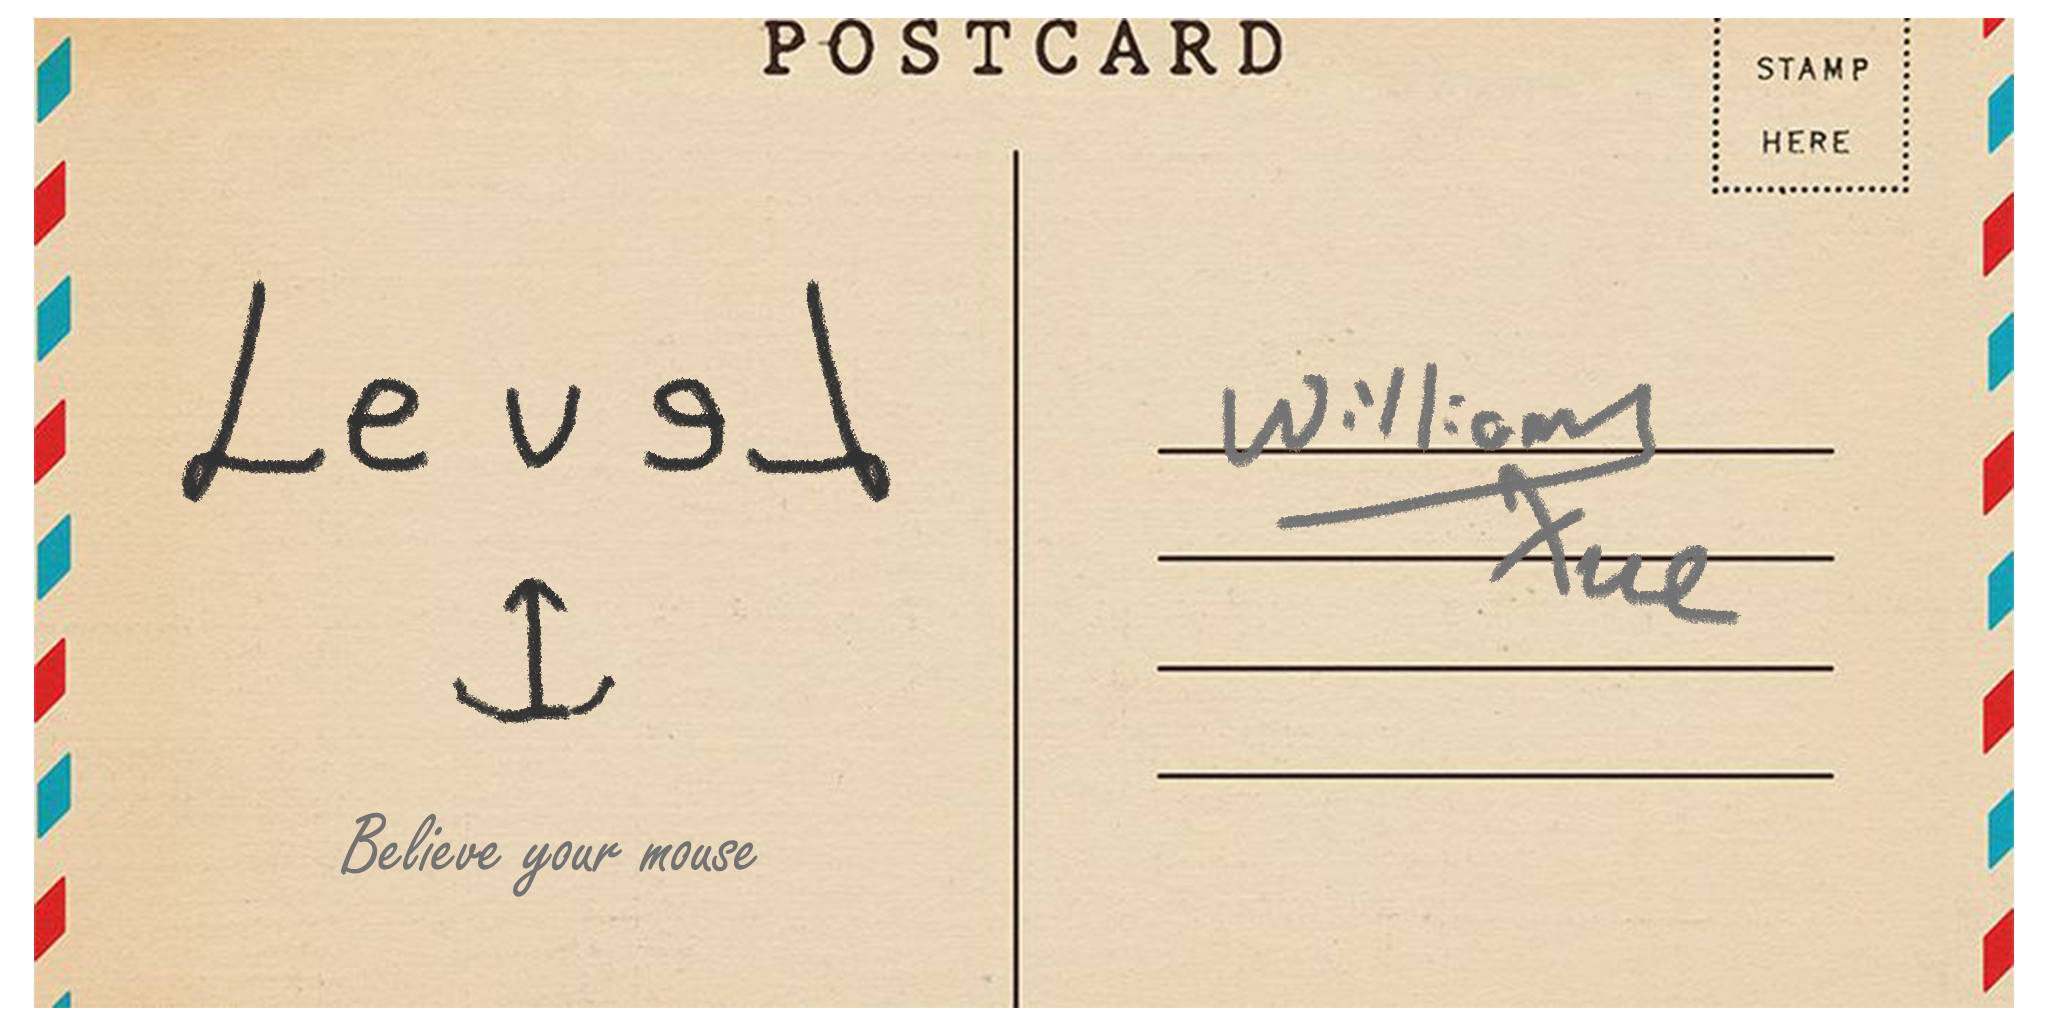 POSTCARD
STAMP
HERE
Level
Believe your mouse
William
Xue